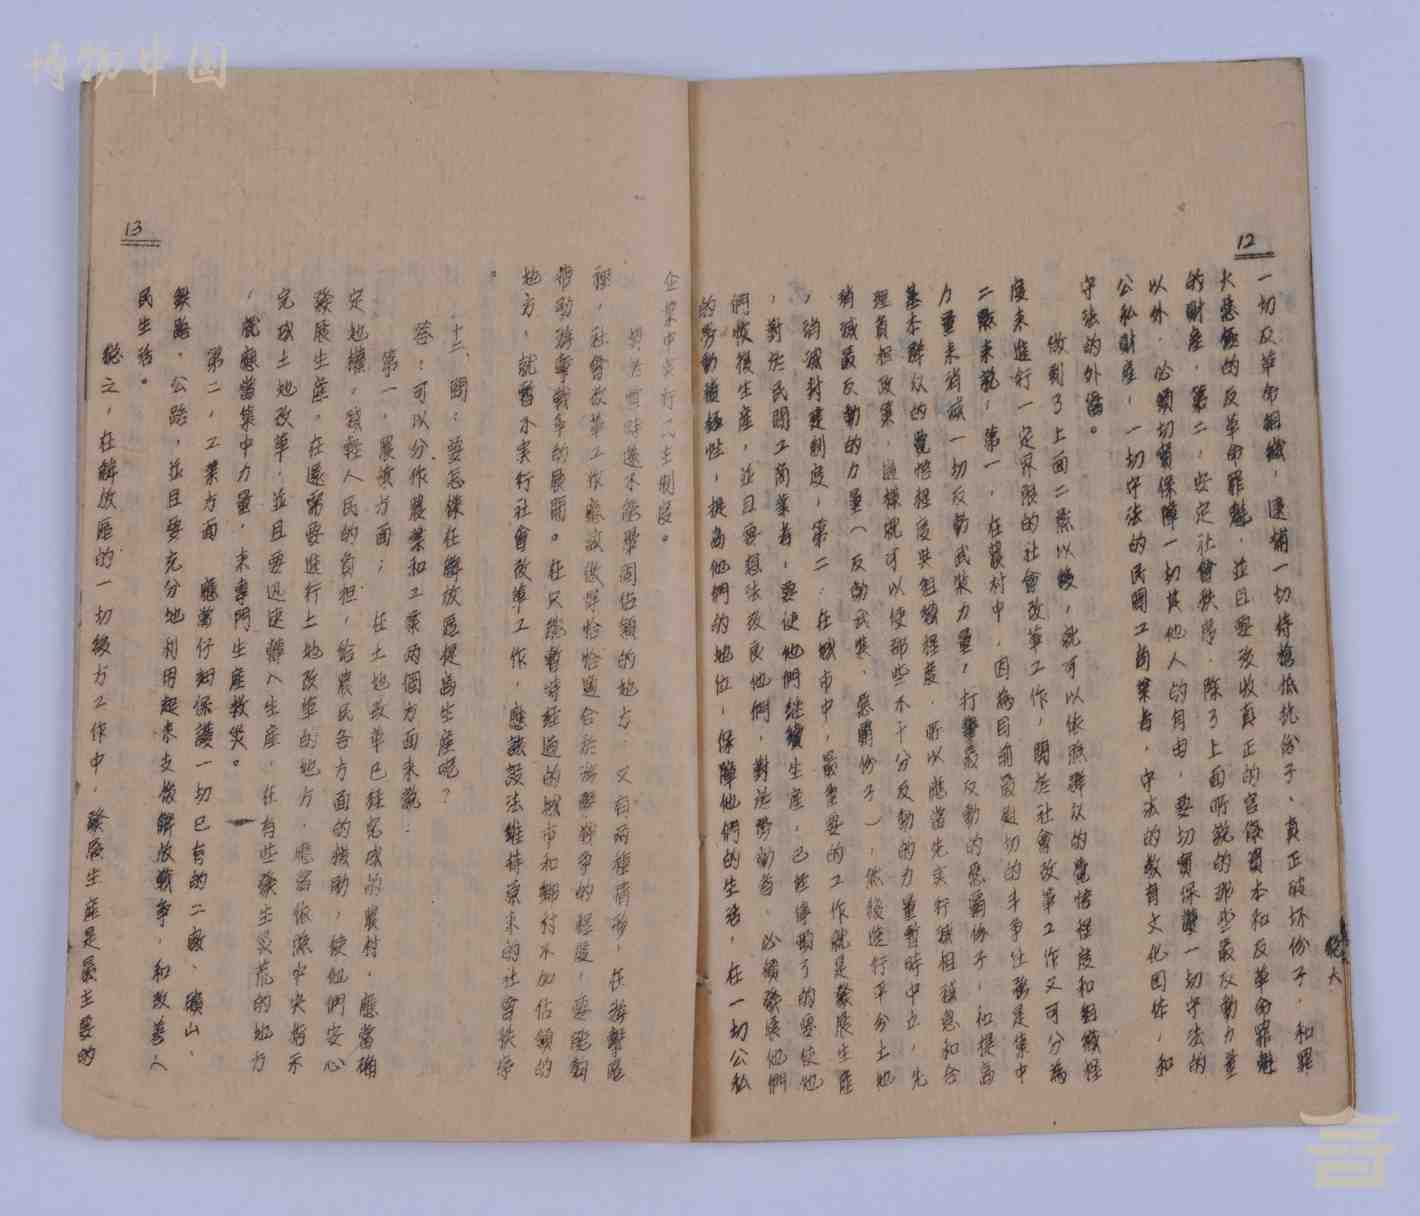 博物中国
12
一切反革命組織，逮捕一切持槍抵抗份子、真正破坏份子，和罪
大惡極的反革命罪魁，並且要沒收真正的官僚資本和反革命罪魁
的財產，第二，安定社會秩序，除了上面所說的那些最反動力量
以外，必須切實保障一切其他人的自由，要切實保護一切守法的
公私財產，一切守法的民間工商業者，守法的教育文化团体，和
守法的外僑。
做到了上面二點以後，就可以依照羣众的覺悟程度和組織程
度来進行一定界限的社會改革工作，關於社會改革工作又可分為
二點来說，第一，在農村中，因為目前最迫切的斗争任務是集中
力量来消滅一切反動武装力量，打擊最反動的惡霸份子，和提高
基本群众的覺悟程度与組織程度，所以應當先实行減租減息和合
理負担政策，這樣就可以使那些不十分反動的力量暫時中立，先
消滅最反動的力量（反動武装、惡霸份子），然後進行平分土地
，消滅封建制度，第二：在城市中，最重要的工作就是發展生產
，對於民間工商業者，要使他們继續生產，已经停頓了的要使他
們恢復生產，並且要想法改良他們，對於勞動者，必須發展他們
的勞動積極性，提高他們的地位，保障他們的生活，在一切公私
企業中实行民主制度。
13
至於暫時還不能鞏固佔領的地方，又有兩種情形，在游擊區
裡，社會改革工作應該做得恰恰適合於游擊战争的程度，要能夠
帮助游擊戰争的展開。在只能暫時经過的城市和鄉村不加佔領的
地方，就暫不实行社會改革工作，應該設法維持原来的社會秩序
。
十三、問：要怎樣在解放區提高生產呢？
答：可以分作農業和工業两個方面来說：
第一，農業方面；在土地改革已經完成的農村，應當確
定地權，減輕人民的負担，給農民各方面的援助，使他們安心
發展生產。在還需要進行土地改革的地方，應當依照中央指示
完成土地改革，並且要迅速轉入生產，在有些發生災荒的地方
，就應當集中力量，来專門生產救災。
第二，工業方面 應當仔細保護一切已有的工廠、礦山、
鉄路、公路，並且要充分地利用起来支援解放戰争，和改善人
民生活。
總之，在解放區的一切後方工作中，發展生產是最主要的